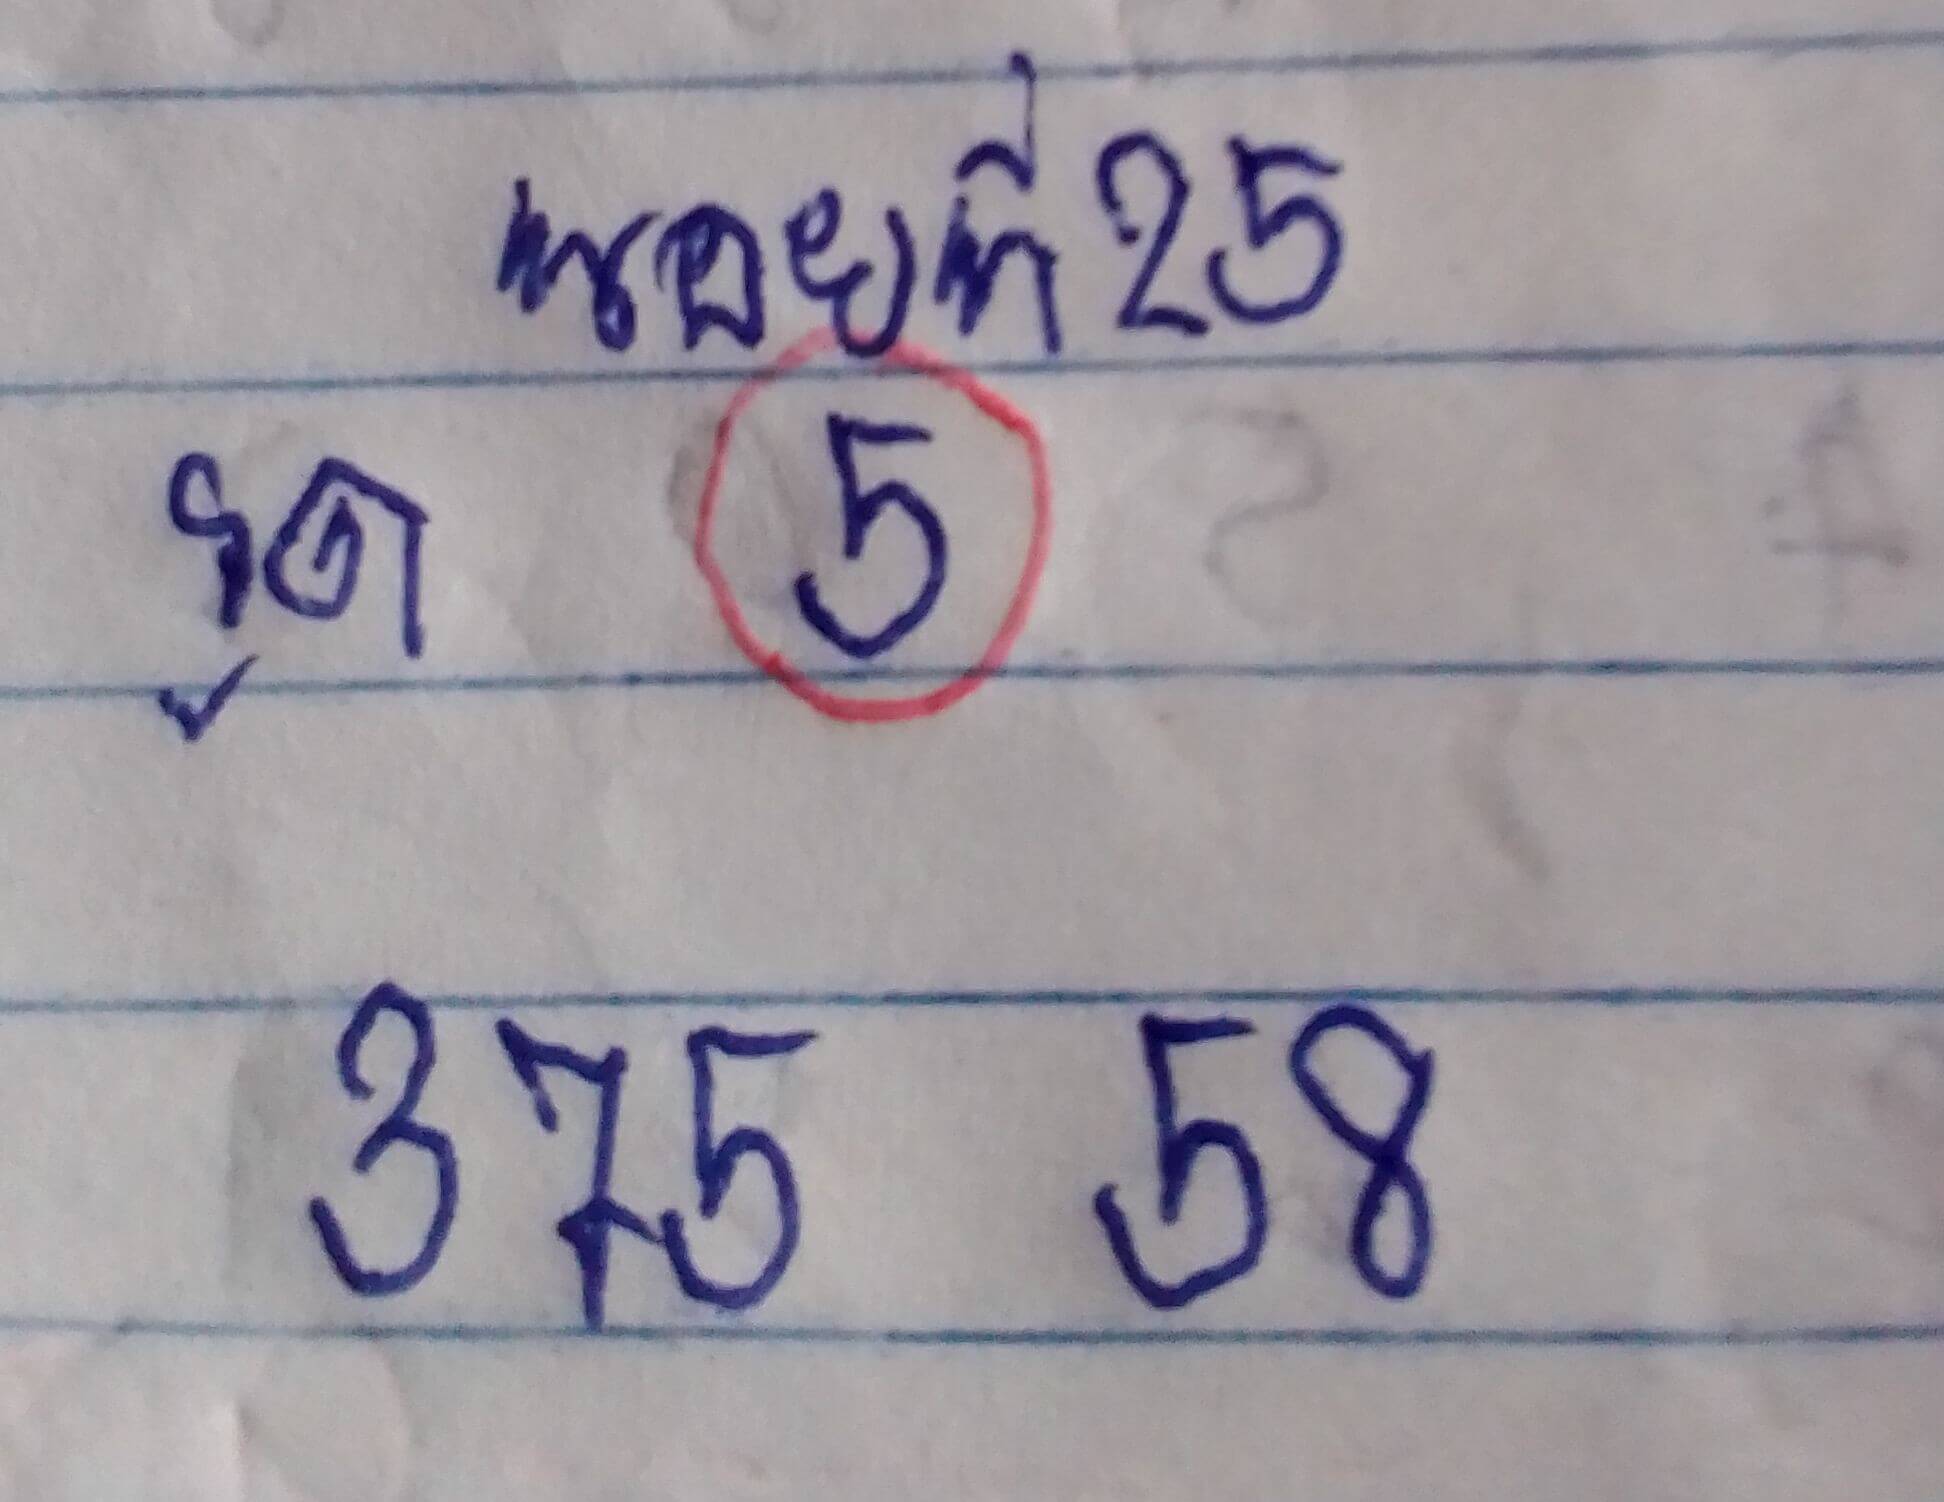 หอยที่ 25
รูด 5
375 58